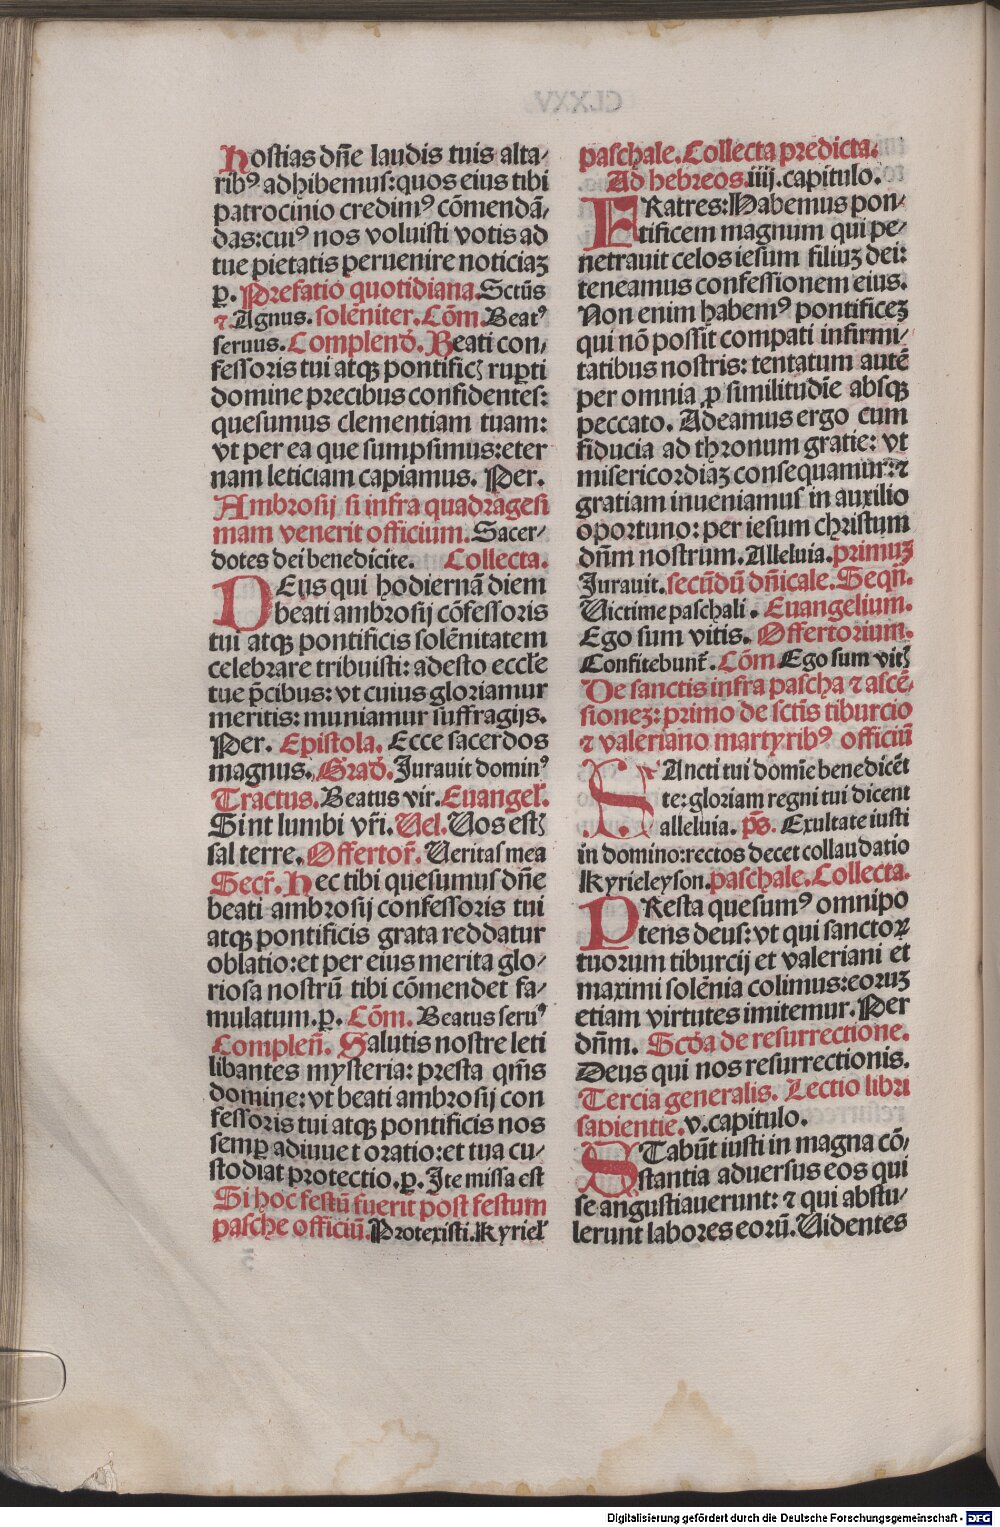 Hostias dn̄e laudis tuis alta⸗
ribꝰ adhibemus: quos eius tibi
patrocinio credimꝰ cōmendā⸗
das: cuiꝰ nos voluisti votis ad
tue pietatis peruenire noticiaꝫ
ꝑ. Prefatio quotidiana. Sctūs
⁊ Agnus. solēniter. Cōm. Beatꝰ
seruus. Complend̄. Beati con⸗
fessoris tui atqꝫ pontificꝭ ruꝑti
domine precibus confidentes:
quesumus clementiam tuam:
vt per ea que sumpsimus: eter
nam leticiam capiamus. Per.
Ambrosij si infra quadragesi
mam venerit officium. Sacer⸗
dotes dei benedicite. Collecta.
DEus qui hodiernā diem
beati ambrosij cōfessoris
tui atqꝫ pontificis solēnitatem
celebrare tribuisti: adesto eccl̄e
tue p̄cibus: vt cuius gloriamur
meritis: muniamur suffragijs.
Per. Epistola. Ecce sacerdos
magnus. Grad̄. Jurauit dominꝰ
Tractus. Beatus vir. Euangel̄.
Sint lumbi vr̄i. Uel. Uos estꝭ
sal terre. Offertor̄. Ueritas mea
Secr̄. Hec tibi quesumus dn̄e
beati ambrosij confessoris tui
atqꝫ pontificis grata reddatur
oblatio: et per eius merita glo⸗
riosa nostrū tibi cōmendet fa⸗
mulatum. ꝑ. Cōm. Beatus seruꝰ
Complen̄. Salutis nostre leti
libantes mysteria: presta qm̄s
domine: vt beati ambrosij con
fessoris tui atqꝫ pontificis nos
semꝑ adiuuet oratio: et tua cu⸗
stodiat protectio. ꝑ. Ite missa est
Si hoc festū fuerit post festum
pasche officiū. Protexisti. Kyriel̄
paschale. Collecta predicta.
Ad hebreos. iiij. capitulo.
FRatres: Habemus pon⸗
tificem magnum qui pe⸗
netrauit celos iesum filiuꝫ dei:
teneamus confessionem eius.
Non enim habemꝰ pontificeꝫ
qui nō possit compati infirmi⸗
tatibus nostris: tentatum autē
per omnia ꝓ similitudīe absqꝫ
peccato. Adeamus ergo cum
fiducia ad thronum gratie: vt
misericordiaꝫ consequamur: ⁊
gratiam inueniamus in auxilio
oportuno: per iesum christum
dn̄m nostrum. Alleluia. primuꝫ
Jurauit. secūdū dn̄icale. Seqn̄.
Uictime paschali. Euangelium.
Ego sum vitis. Offertorium.
Confitebunt̄. Cōm Ego sum vitꝭ
De sanctis infra pascha ⁊ ascē⸗
sioneꝫ: primo de sctīs tiburcio
⁊ valeriano martyribꝰ officiū
SAncti tui domīe benedicēt
te: gloriam regni tui dicent
alleluia. p̄s. Exultate iusti
in domino: rectos decet collaudatio
Kyrieleyson. paschale. Collecta.
PResta quesumꝰ omnipo
tens deus: vt qui sanctoꝝ
tuorum tiburcij et valeriani et
maximi solēnia colimus: eoruꝫ
etiam virtutes imitemur. Per
dn̄m. Scd̄a de resurrectione.
Deus qui nos resurrectionis.
Tercia generalis. Lectio libri
sapientie. v. capitulo.
STabūt iusti in magna cō⸗
stantia aduersus eos qui
se angustiauerunt: ⁊ qui abstu⸗
lerunt labores eorū. Uidentes
Digitalisierung gefördert durch die Deutsche Forschungsgemeinschaft - DFG